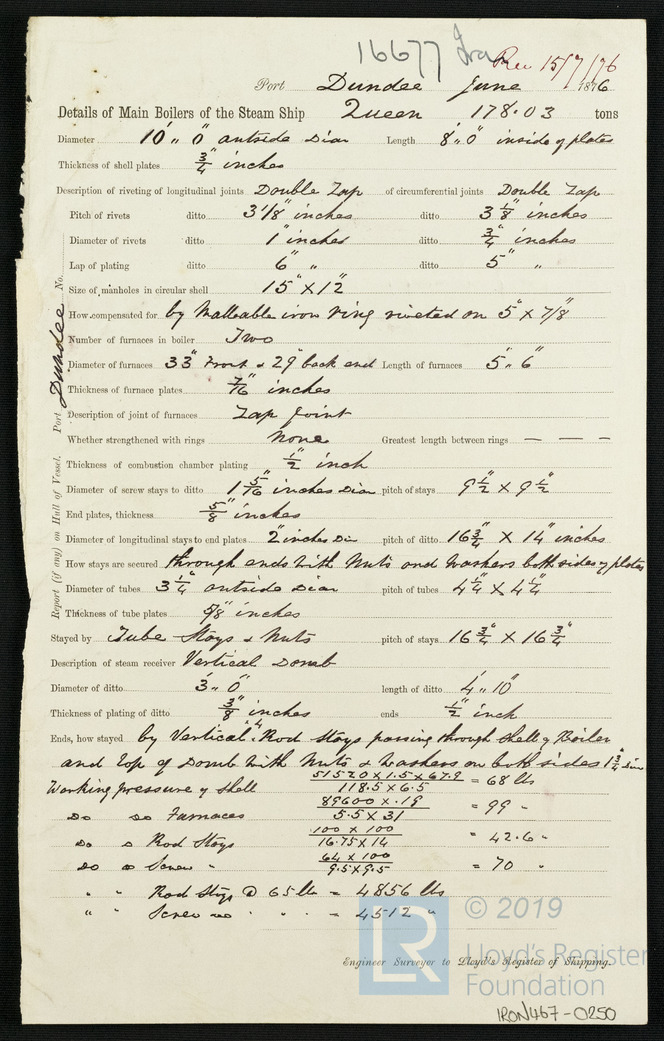 16677 Iron Rec 15/7/76
Port Dundee June 1876
Details of Main Boilers of the Steam Ship Queen 178.03 tons
Diameter 10' " 0" outside Diar Length 8' " 0" inside of plates
Thickness of shell plates 3/4" inches
Description of riveting of longitudinal joints Double Lap of circumferential joints Double Lap
Pitch of rivets ditto 3 1/8" inches ditto 3 1/8" inches
Diameter of rivets ditto 1" inches ditto 3/4" inches
Lap of plating ditto 6" " ditto 5" "
Size of manholes in circular shell 15" X 12"
How compensated for by Malleable iron ring riveted on 5" X 7/8"
Number of furnaces in boiler Two
Diameter of furnaces 33" Front & 29" back end Length of furnaces 5' " 6"
Thickness of furnace plates 7/16" inches
Description of joint of furnaces Lap Joint
Whether strengthened with rings None Greatest length between rings — — —
Thickness of combustion chamber plating 1/2" inch
Diameter of screw stays to ditto 1 5/16" inches Diar pitch of stays 9 1/2" X 9 1/2"
End plates, thickness 5/8" inches
Diameter of longitudinal stays to end plates 2" inches Dia pitch of ditto 16 3/4" X 14" inches
How stays are secured through ends with Nuts and washers both sides of plates
Diameter of tubes 3 1/4" outside Diar pitch of tubes 4 1/4" X 4 1/4"
Thickness of tube plates 5/8" inches
Stayed by Tube Stays & Nuts pitch of stays 16 3/4" X 16 3/4"
Description of steam receiver Vertical Domb
Diameter of ditto 3' " 0" length of ditto 4' " 10"
Thickness of plating of ditto 3/8" inches ends 1/2" inch
Ends, how stayed by Vertical "4" Rod Stays passing through Shell of Boiler
and top of Domb with Nuts & Washers on both sides 1 3/4" Dia
Working pressure of shell 51520 X 1.5 X 67.9 / 118.5 X 6.5 = 68 lbs
Do Do Furnaces 89600 X .19 / 5.5 X 31 = 99 "
Do Do Rod Stays 100 X 100 / 16.75 X 14 = 42.6 "
Do Do Screw " 64 X 100 / 9.5 X 9.5 = 70 "
" " Rod Stays @ 65 lbs = 4856 lbs
" " Screw Do " " = 4512 "
Engineer Surveyor to Lloyd's Register of Shipping.
Report (if any) on Hull of Vessel. Port Dundee No.
LR
© 2019
Lloyd's Register
Foundation
IRON467-0250